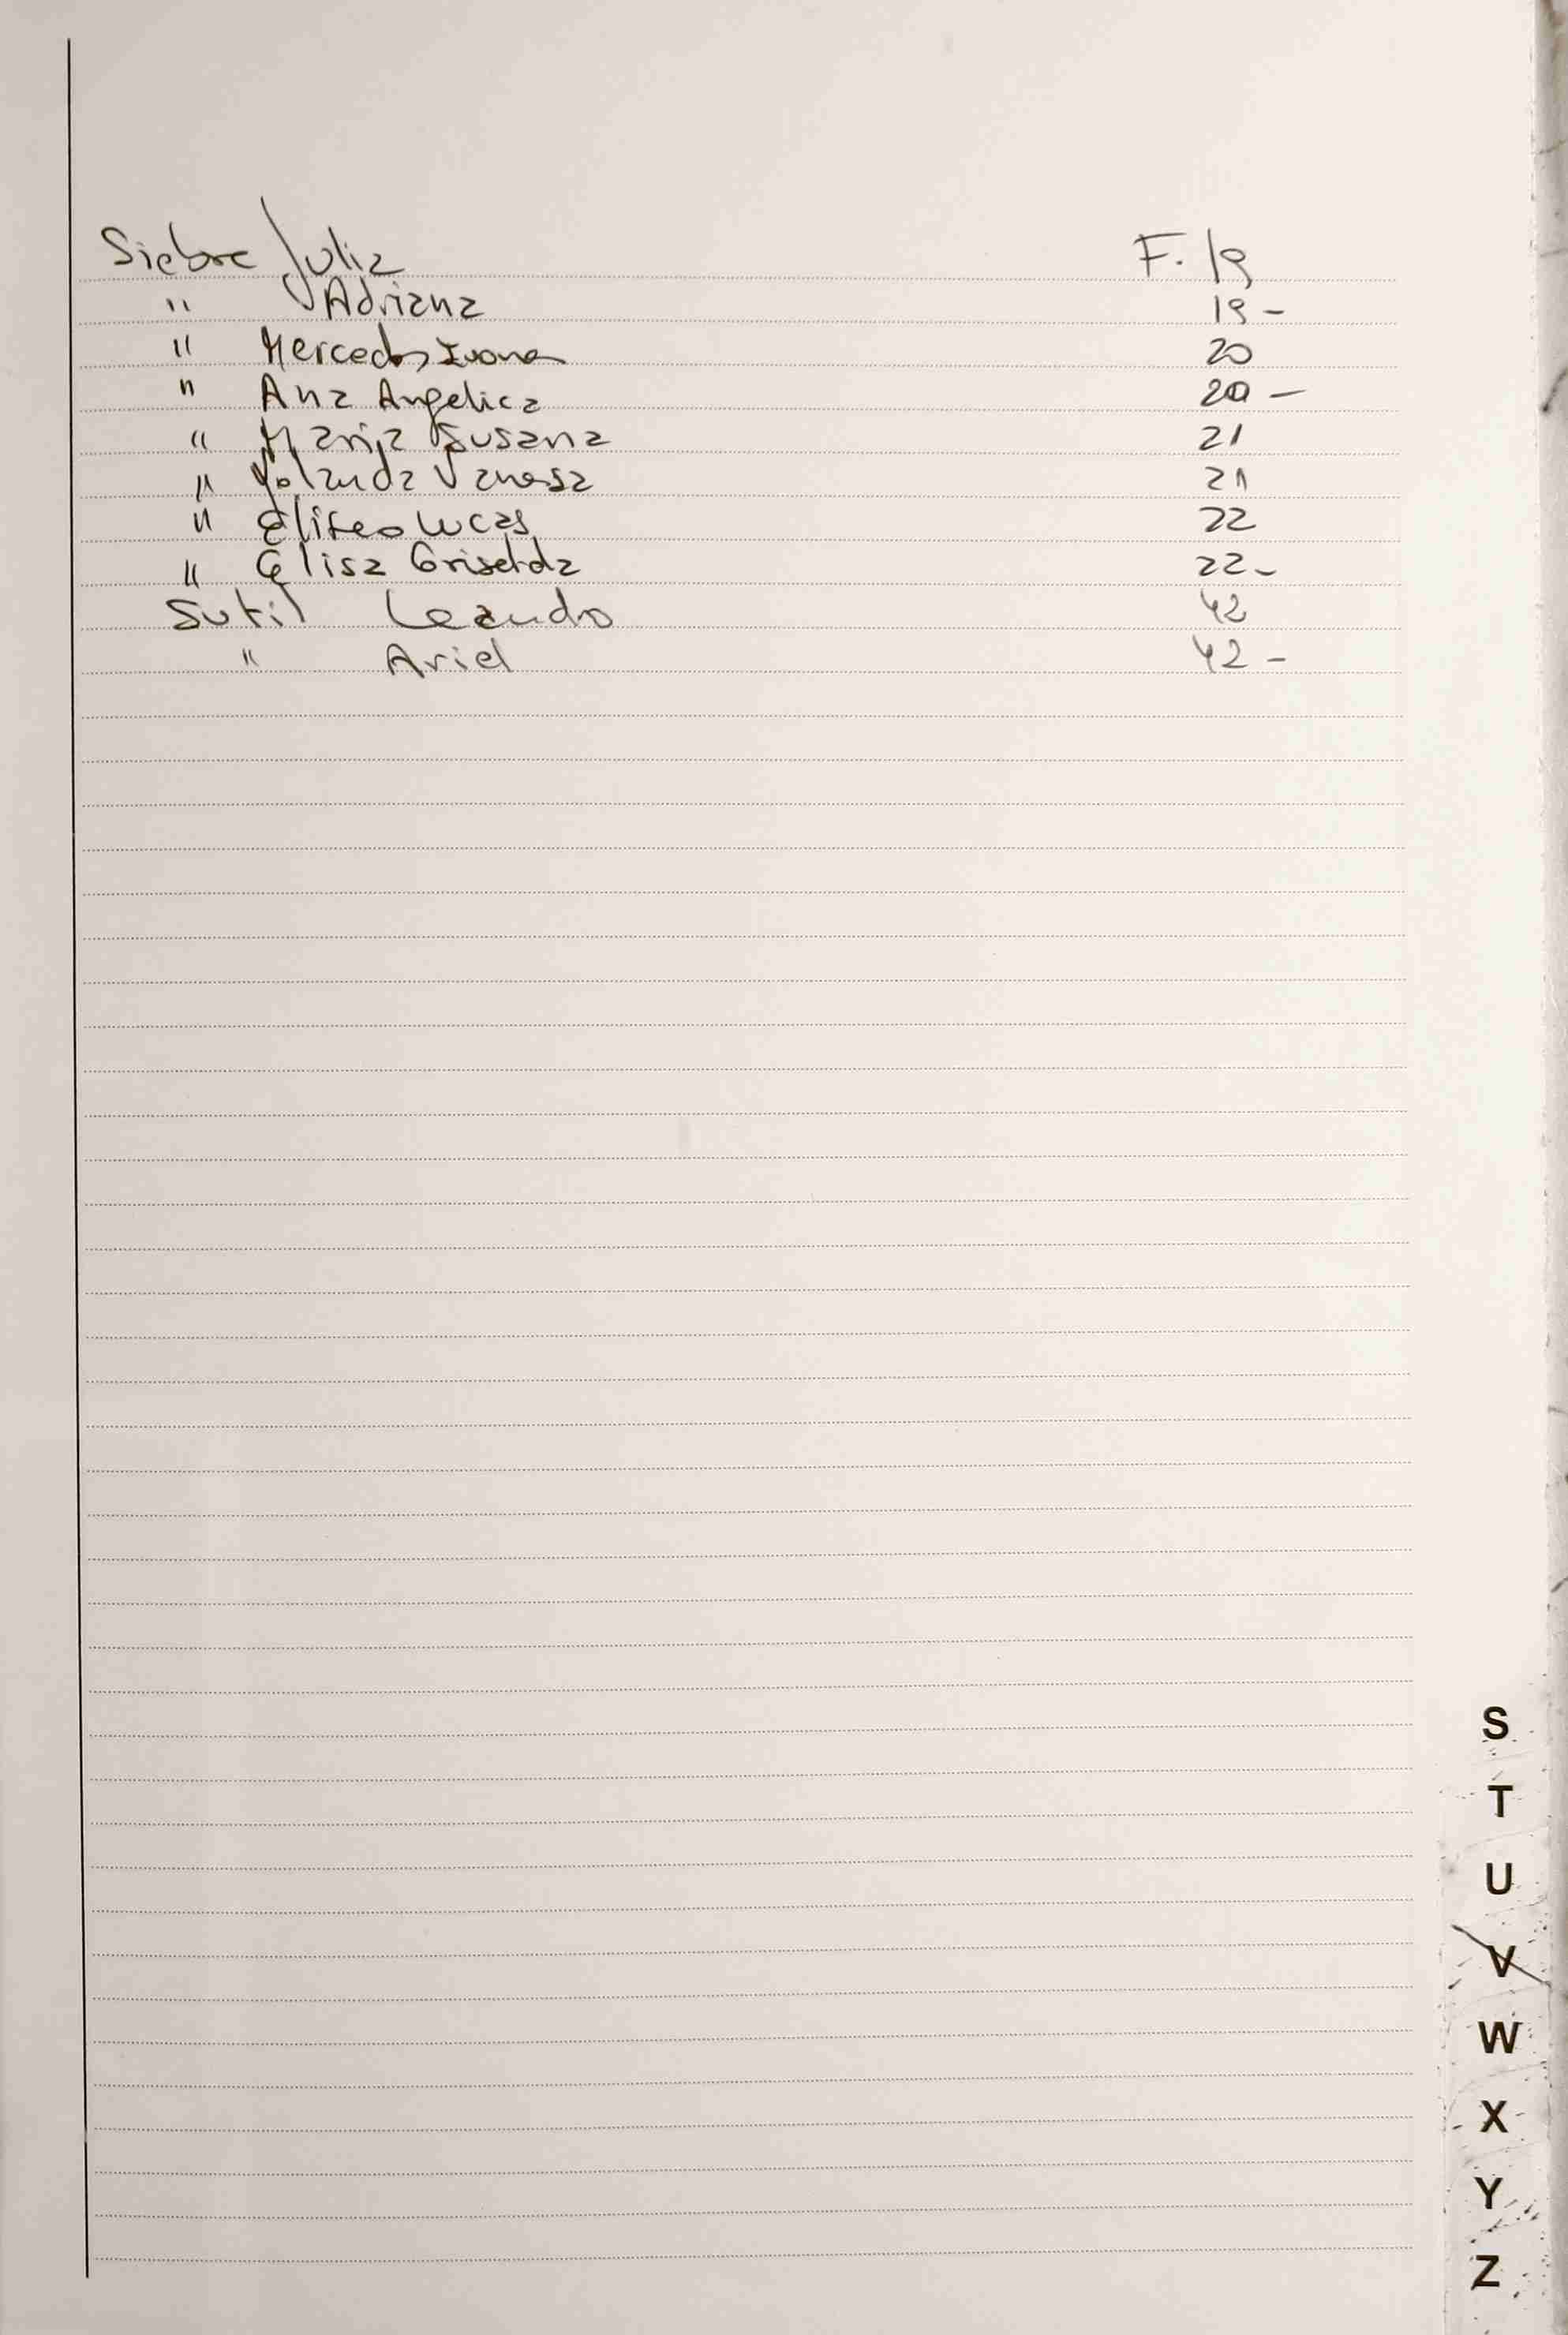 Siebre Julia F. 19
" Adriana 19 -
" Mercedes Ivone 20
" Ana Angelica 20 -
" Maria Susana 21
" Yolanda Vanesa 21
" Eliseo Lucas 22
" Elisa Griselda 22 -
Sutil Leandro 42
" Ariel 42 -
S
T
U
V
W
X
Y
Z